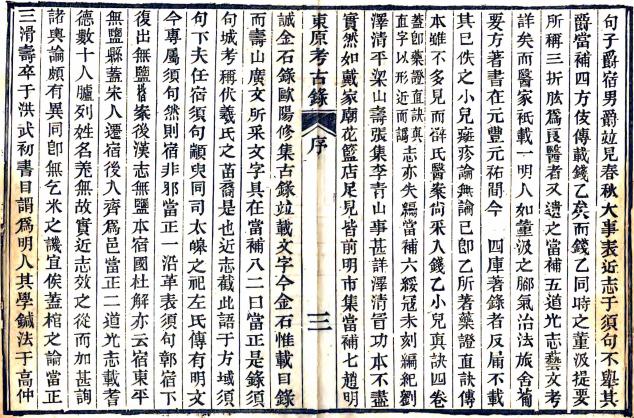 句子爵宿男爵竝見春秋大事表近志于須句不舉其
爵當補四方伎傳載錢乙矣而錢乙同時之董汲提要
所稱三折肱爲良醫者又遺之當補五道光志藝文考
詳矣而醫家秖載一明人如董汲之腳氣治法旅舍備
要方著書在元豐元祐閒今 四庫著錄者反屚不載
其已佚之小兒疹論無論已卽乙所著藥證直訣傳
本雖不多見而薛氏醫案尙采入錢乙小兒眞訣四卷
蓋卽藥證直訣眞直字以形近而譌 志亦失編當補六綏冠未刻編紀劉
澤清平梁山壽張集李青山事甚詳澤清晉功本不盡
實然如戴家廟花籃店足見皆前明市集當補七趙明
東原考古錄 序 三
誠金石錄歐陽修集古錄竝載文字今金石惟載目錄
而壽山廣文所采文字具在當補八二曰當正是錄須
句城考稱伏羲氏之苗裔是也近志截此語于方域須
句下夫任宿須句顓臾同司太皞之祀左氏傳有明文
今專屬須句然則宿非邪當正一沿革表須句鄣宿下
復出無鹽案後漢志無鹽本宿國杜解亦云宿東平
無鹽縣蓋宋人遷宿後入齊爲邑當正二道光志載耆
德數十人臚列姓名羌無故實近志效之從而加甚詢
諸輿論頗有異同卽無乞米之譏宜俟蓋棺之論當正
三滑壽卒于洪武初書目謂爲明人其學鍼法于高仲